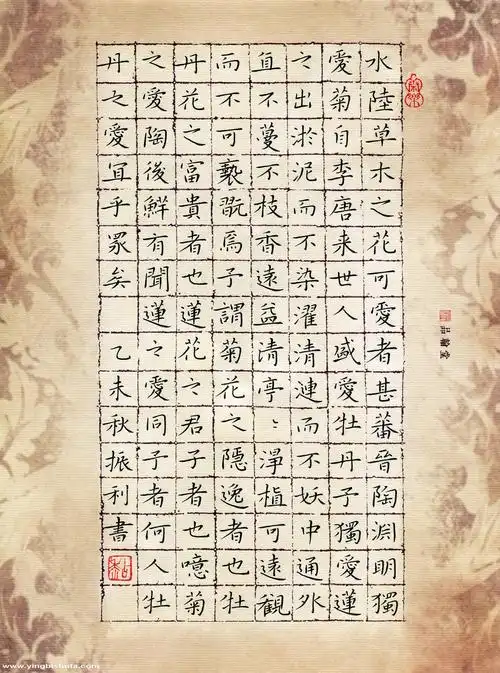 水陸草木之花可愛者甚蕃晉陶淵明獨
愛菊自李唐来世人盛愛牡丹予獨愛蓮
之出淤泥而不染濯清漣而不妖中通外
直不蔓不枝香遠益清亭〻淨植可遠觀
而不可褻翫焉予謂菊花之隱逸者也牡
丹花之富貴者也蓮花之君子者也噫菊
之愛陶後鮮有聞蓮之愛同予者何人牡
丹之愛宜乎眾矣 乙未秋振利書
品翰堂